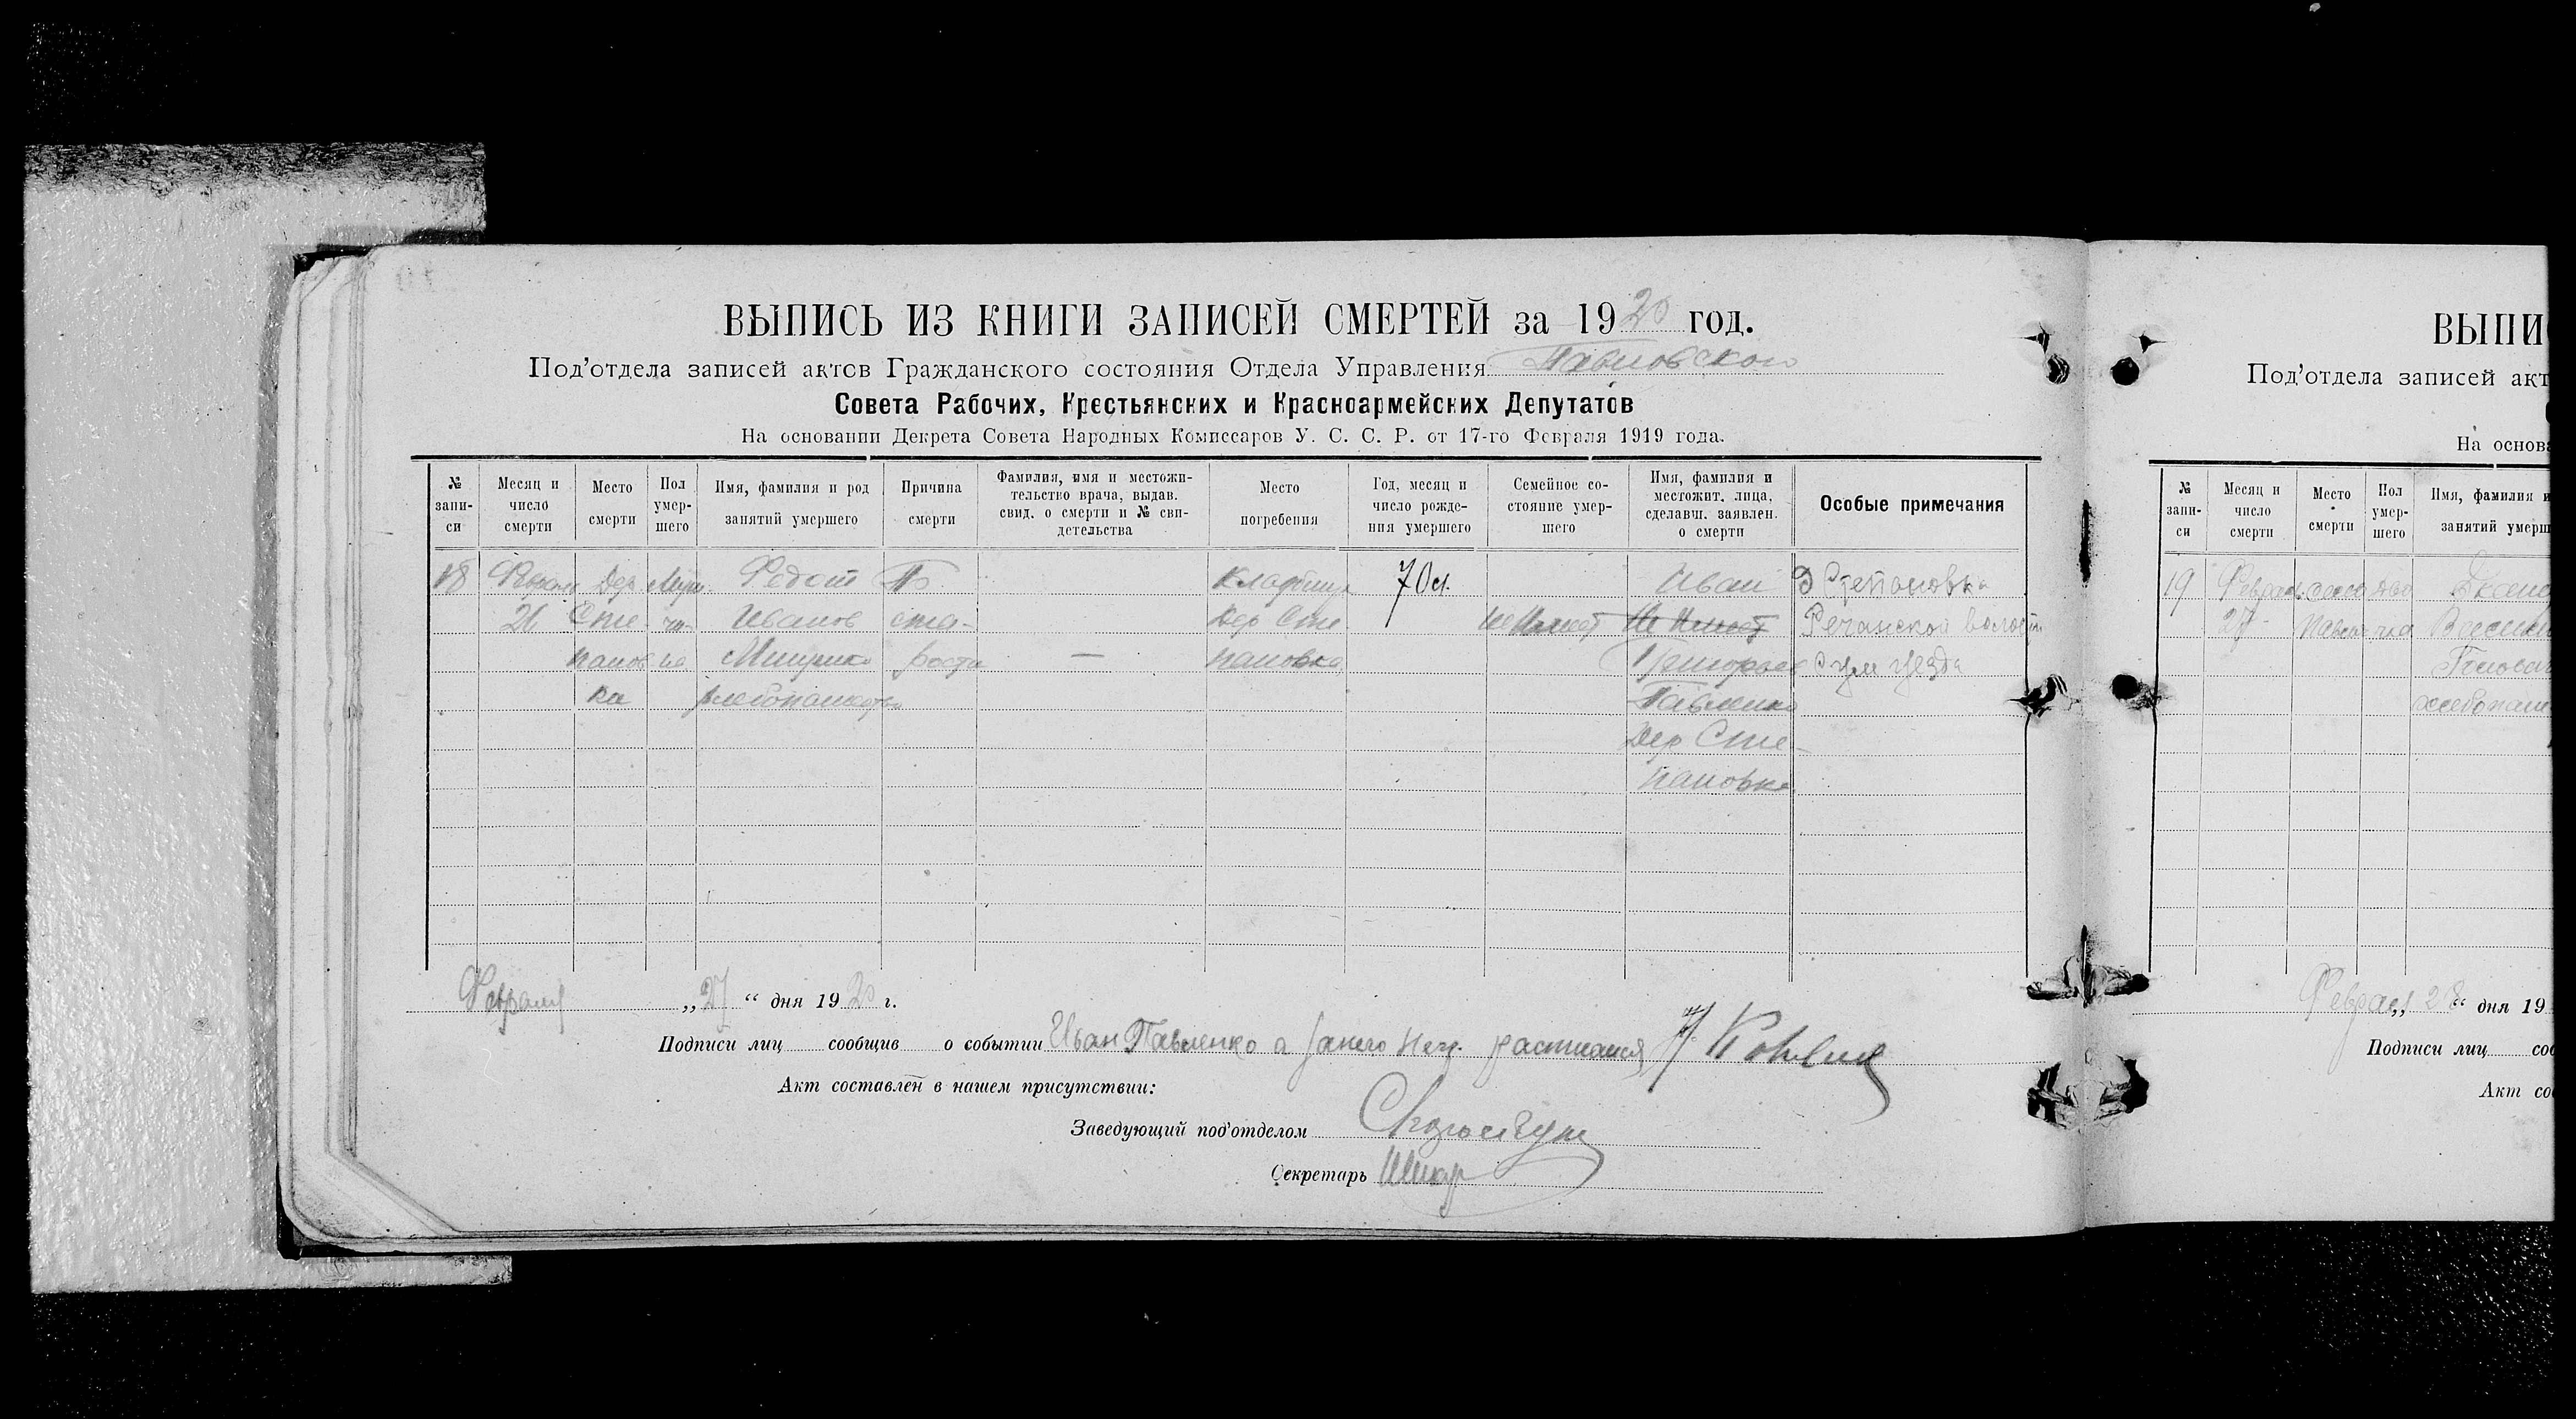 ВЫПИСЬ ИЗ КНИГИ ЗАПИСЕЙ СМЕРТЕЙ за 1920 год.
Под'отдела записей актов Гражданского состояния Отдела Управления Павловской
Совета Рабочих, Крестьянских и Красноармейских Депутатов
На основании Декрета Совета Народных Комиссаров У. С. С. Р. от 17-го Февраля 1919 года.
№ запи-си
Месяц и число смерти
Место смерти
Пол умер-шего
Имя, фамилия и род занятий умершего
Причина смерти
Фамилия, имя и местожи-тельство врача, выдав. свид. о смерти и № сви-детельства
Место погребения
Год, месяц и число рожде-ния умершего
Семейное со-стояние умер-шего
Имя, фамилия и местожит. лица, сделавш. заявлен. о смерти
Особые примечания
18 Февраль Дер. Муж Федот По Кладбище 70 л. Иван Д Степановка
26 Сте чи- Иванов ста- Дер Сте Не Имеет Не Имеет Речанской волости
панов на рости — пановка Григорьев Сум уезда
ка хлебопашество Павленко
Дер Сте-
пановка
Февраля „27“ дня 1920 г.
Подписи лиц сообщив о событии Иван Павленко а
Акт составлен в нашем присутствии:
Заведующий под'отделом
Секретарь
ВЫПИ
Под'отдела записей акт
На основа
№ запи-си
Месяц и число смерти
Место смерти
Пол умер-шего
Имя, фамилия и
занятий умерш
19 Февраль
27
хлебопаш
Февраля „28“ дня 19
Подписи лиц соо
Акт со